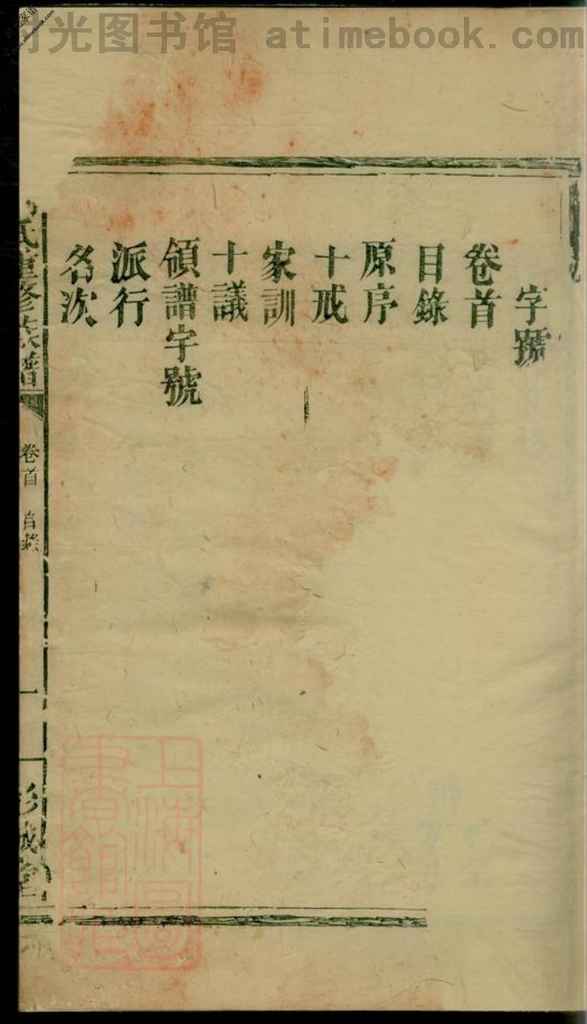 时光图书馆 atimebook.com
字號
卷首
目錄
原序
十戒
家訓
十議
領譜字號
派行
名次
氏重修族譜
卷首 目錄
一
彭城堂